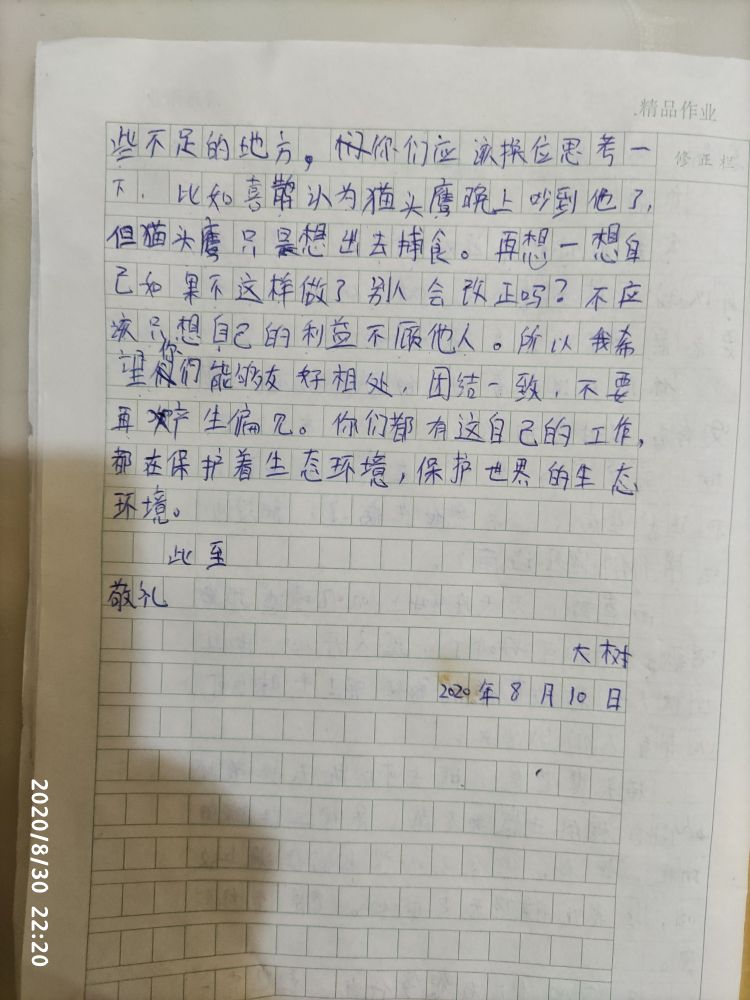 精品作业
修正栏
些不足的地方，你们应该换位思考一
下．比如喜鹊认为猫头鹰晚上吵到他了，
但猫头鹰只是想出去捕食。再想一想自
己如果不这样做了别人会改正吗？不应
该只想自己的利益不顾他人。所以我希
望你们能够友好相处，团结一致，不要
再次产生偏见。你们都有这自己的工作，
都在保护着生态环境，保护世界的生态
环境。
此至
敬礼
大树
2020年8月10日
2020/8/30 22:20